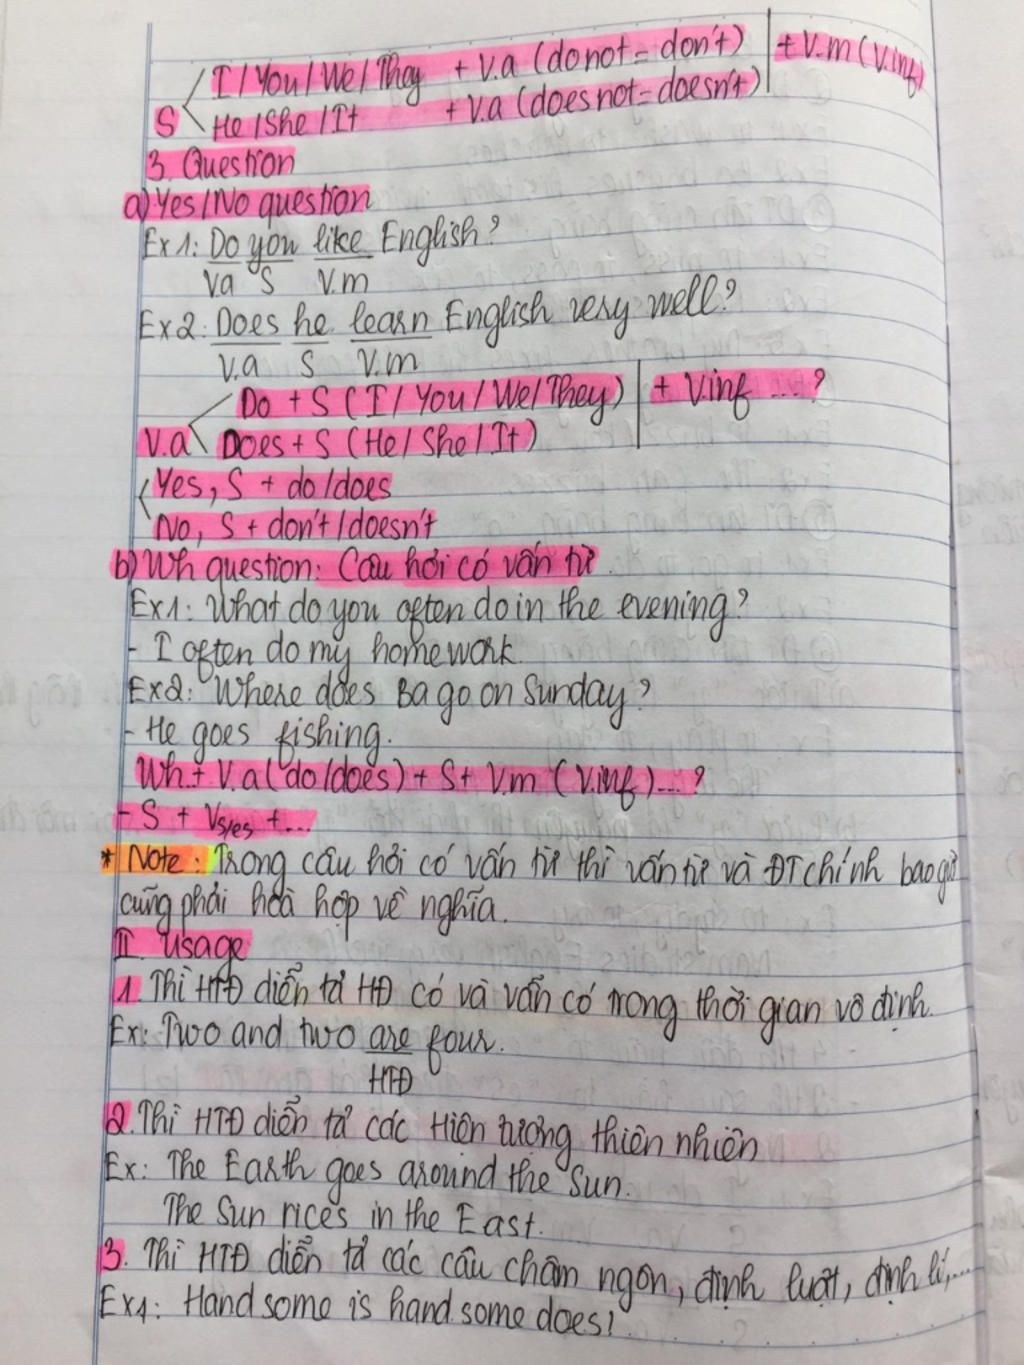 I/You/We/They + V.a (do not = don't) + V.m (V.inf)
S He/She/It + V.a (does not = doesn't)
3. Question
a) Yes/No question
Ex1: Do you like English?
V.a S V.m
Ex2: Does he learn English very well?
V.a S V.m
Do + S (I/You/We/They) + V.inf ...?
V.a Does + S (He/She/It)
Yes, S + do/does
No, S + don't/doesn't
b) Wh question: Câu hỏi có vấn từ
Ex1: What do you often do in the evening?
- I often do my homework.
Ex2: Where does Ba go on Sunday?
- He goes fishing.
Wh + V.a (do/does) + S + V.m (V.inf)...?
- S + Vs/es + ...
* Note: Trong câu hỏi có vấn từ thì vấn từ và ĐT chính bao giờ
cũng phải hoà hợp về nghĩa.
II. Usage
1. Thì HTĐ diễn tả HĐ có và vẫn có trong thời gian vô định.
Ex: Two and two are four.
HTĐ
2. Thì HTĐ diễn tả các Hiện tượng thiên nhiên
Ex: The Earth goes around the Sun.
The Sun rices in the East.
3. Thì HTĐ diễn tả các câu châm ngôn, định luật, định lí,...
Ex1: Hand some is hand some does!